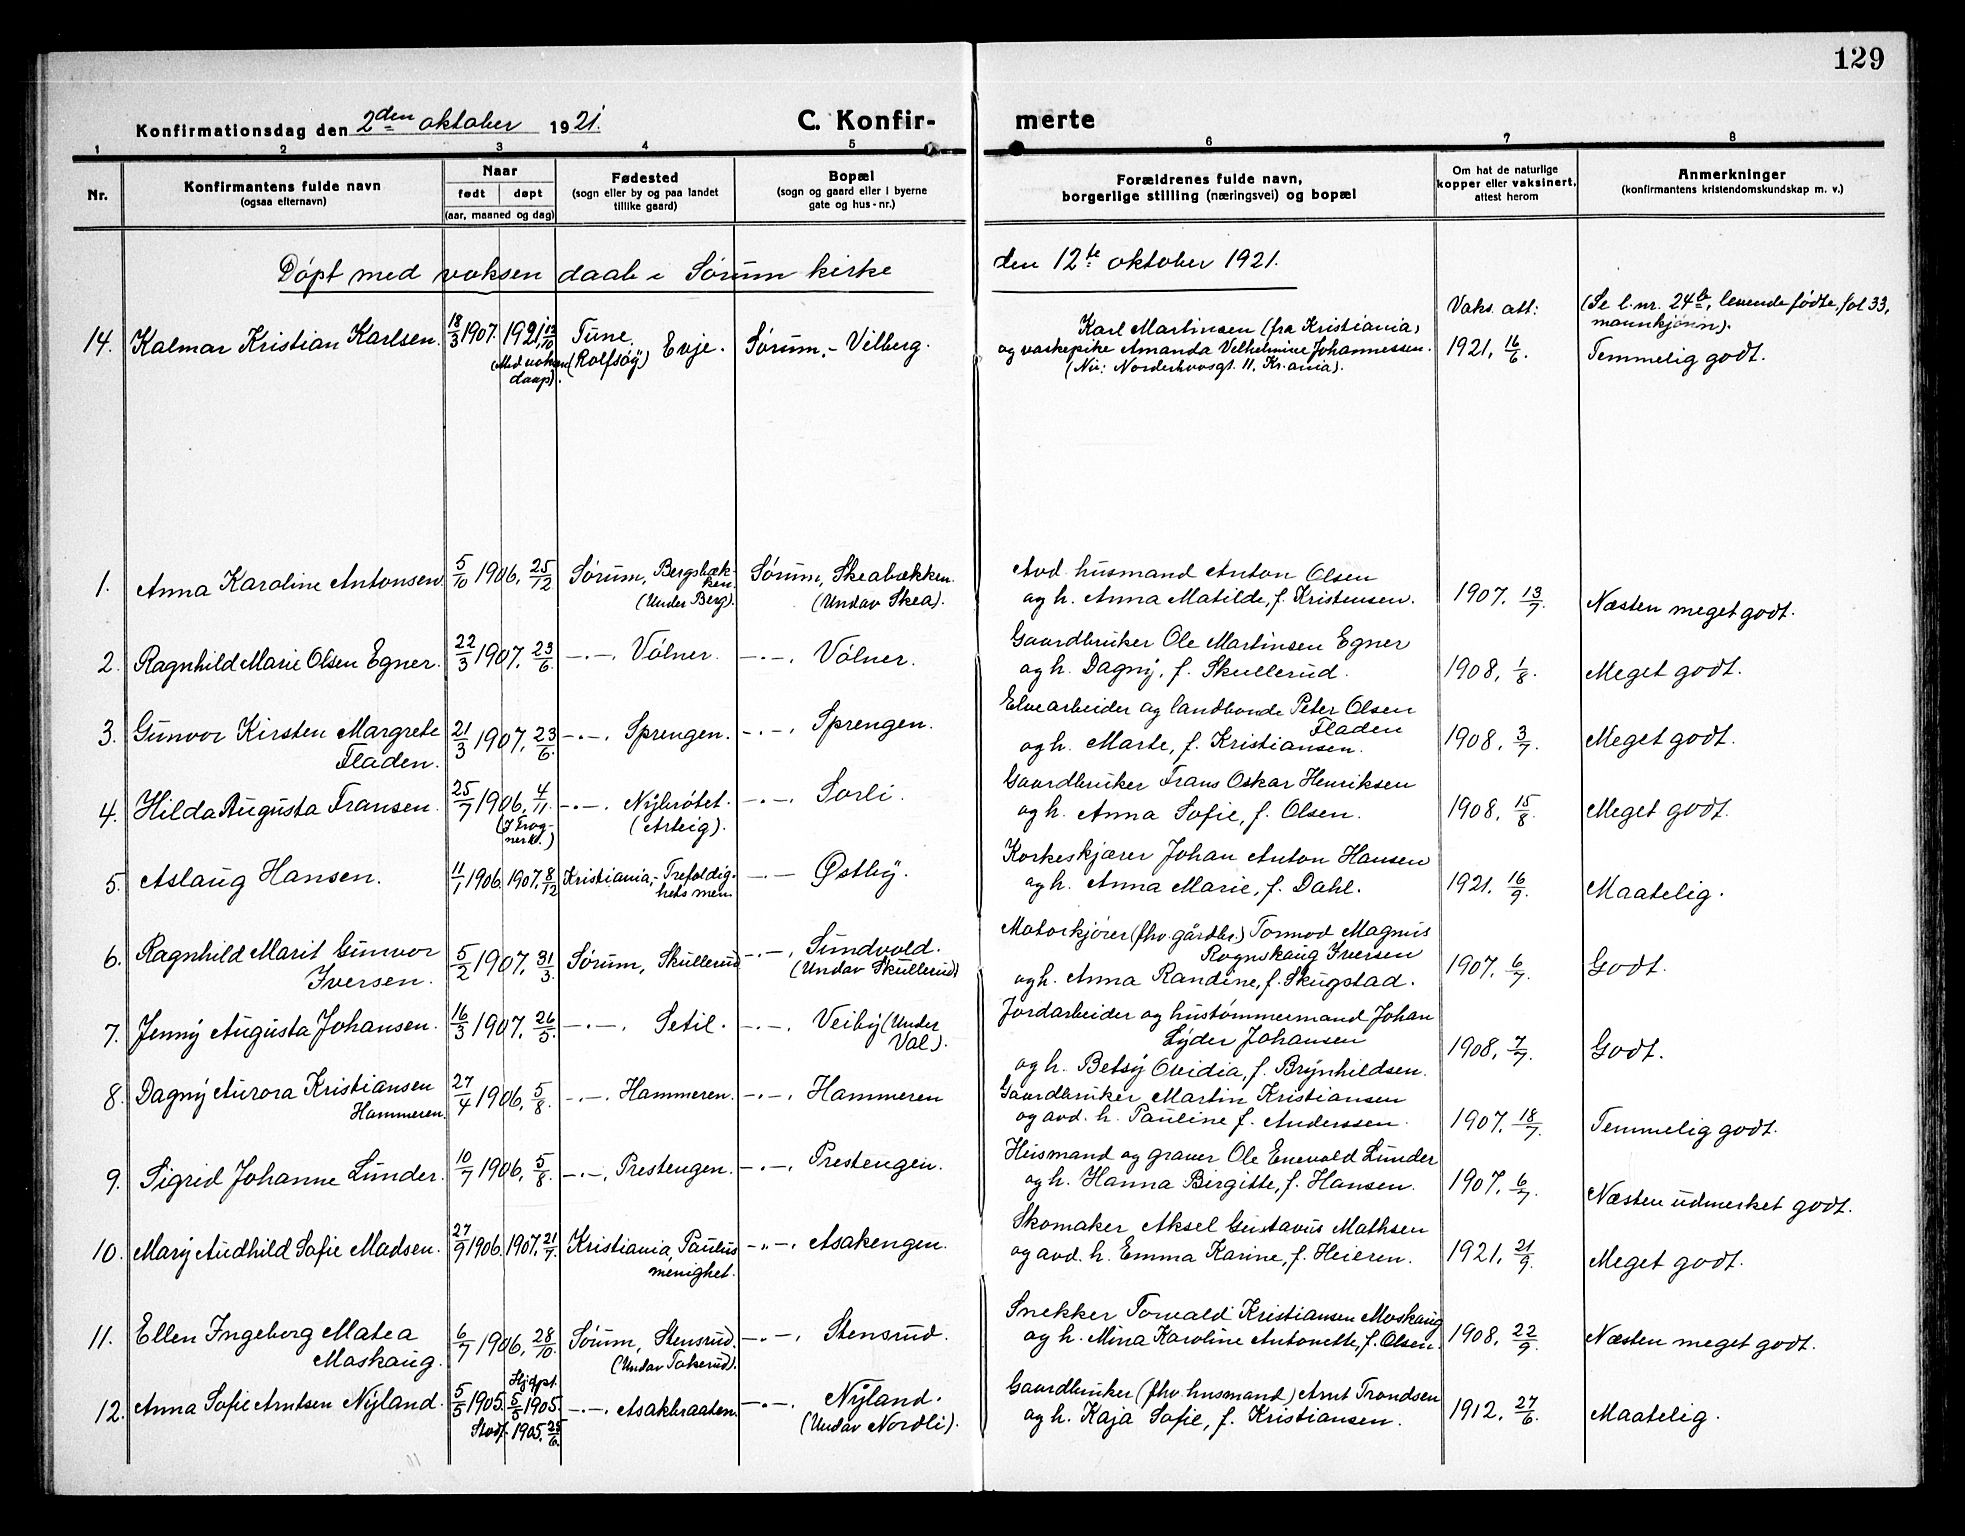 129
Konfirmationsdag den 2den oktober 1921.
C. Konfirmerte
1 2 3 4 5 6 7 8
Nr.
Konfirmantens fulde navn
(ogsaa efternavn)
Naar
født døpt
(aar, maaned og dag)
Fødested
(sogn eller by og paa landet
tillike gaard)
Bopæl
(sogn og gaard eller i byerne
gate og hus-nr.)
Forældrenes fulde navn,
borgerlige stilling (næringsvei) og bopæl
Om hat de naturlige
kopper eller vaksinert,
attest herom
Anmerkninger
(konfirmantens kristendomskundskap m. v.)
Døpt med voksen daab i Sørum kirke den 12te oktober 1921.
14. Kalmar Kristian Karlsen. 18/3 1907. 1921, 12/10 (Med voksen daap). Tune, (Rolfsøy) Evje. Sørum, - Vilberg.
Karl Martinsen (fra Kristiania,
og vaskepike Amanda Vilhelmine Johannessen.
(Nu: Norderhovsgt. 11, Kr.ania).
Vaks. att:
1921, 16/6.
(Se l. nr. 24de, levende fødte, fol 33,
mannkjønn).
Temmelig godt.
1. Anna Karoline Antonsen. 5/10 1906, 25/12 Sørum, Bergsbækken (Under Berg). Sørum, Skeabækken. (Undav Skea).
Avd. husmand Anton Olsen
og h. Anna Matilde, f. Kristensen.
1907, 13/7. Næsten meget godt.
2. Ragnhild Marie Olsen Egner. 22/3 1907, 23/6. -·-, Vølner. -·-, Vølner.
Gaardbruker Ole Martinsen Egner
og h. Dagny, f. Skullerud.
1908, 1/8. Meget godt.
3. Gunvor Kirsten Margrete
Fladen. 21/3 1907, 23/6. -·-, Sprengen. -·-, Sprengen.
Elvearbeider og landbonde Peter Olsen
Fladen
og h. Marte, f. Kristiansen.
1908, 3/7. Meget godt.
4. Hilda Augusta Fransen. 25/7 1906, 4/11. (I Frognerk.) -·-, Nybrøtet. (Arteig). -·-, Sorli.
Gaardbruker Frans Oskar Henriksen
og h. Anna Sofie, f. Olsen.
1908, 15/8. Meget godt.
5. Aslaug Hansen. 11/1 1906. 1907, 8/12 Kristiania, - Trefoldighets men. -·- Østby.
Korkeskjærer Johan Anton Hansen
og h. Anna Marie, f. Dahl.
1921, 16/9. Maatelig.
6. Ragnhild Marit Gunvor
Iversen. 5/2 1907, 31/3. Sørum, Skullerud -·-, Sundvold. (Undav Skullerud)
Motorkjører (fhv. gårdbr.) Tormod Magnus
Rognskaug Iversen
og h. Anna Randine, f. Skugstad.
1907, 6/7. Godt.
7. Jenny Augusta Johansen. 16/3 1907, 26/5. -·-, Setil. -·-, Veiby (Under Val).
Jordarbeider og hustømmermand Johan
Lyder Johansen
og h. Betsy Ovidia, f. Brynhildsen.
1908, 7/7. Godt.
8. Dagny Aurora Kristiansen
Hammeren. 27/4 1906, 5/8. -·-, Hammeren. -·-, Hammeren
Gaardbruker Martin Kristiansen
og avd. h. Pauline f. Anderssen.
1907, 18/7. Temmelig godt.
9. Sigrid Johanne Lunder. 10/7 1906, 5/8. -·-, Prestengen. -·-, Prestengen.
Husmand og graver Ole Enevold Lunder
og h. Hanna Birgitte, f. Hansen.
1907, 6/7. Næsten udmerket godt.
10. Mary Audhild Sofie Madsen. 27/9 1906. 1907, 21/7. Kristiania, Paulus menighet. -·-, Asakengen.
Skomaker Aksel Gustavus Mathsen
og avd. h. Emma Karine, f. Heieren.
1921, 21/9. Meget godt.
11. Ellen Ingeborg Matea
Moskaug. 6/7 1906, 28/10. Sørum, Stensrud. (Undav Takerud). -·-, Stensrud.
Snekker Torvald Kristiansen Moskaug
og h. Mina Karoline Antonette, f. Olsen.
1908, 22/9. Næsten meget godt.
12. Anna Sofie Arntsen Nyland. 5/5 1905. Hjdpt. 5/5 1905 Stadf. 1905, 25/6. -·-, Asakbraaten. -·-, Nyland. (Undav Nordli).
Gaardbruker (fhv. husmand) Arnt Trondsen
og h. Kaja Sofie, f. Kristiansen.
1912, 27/6. Maatelig.